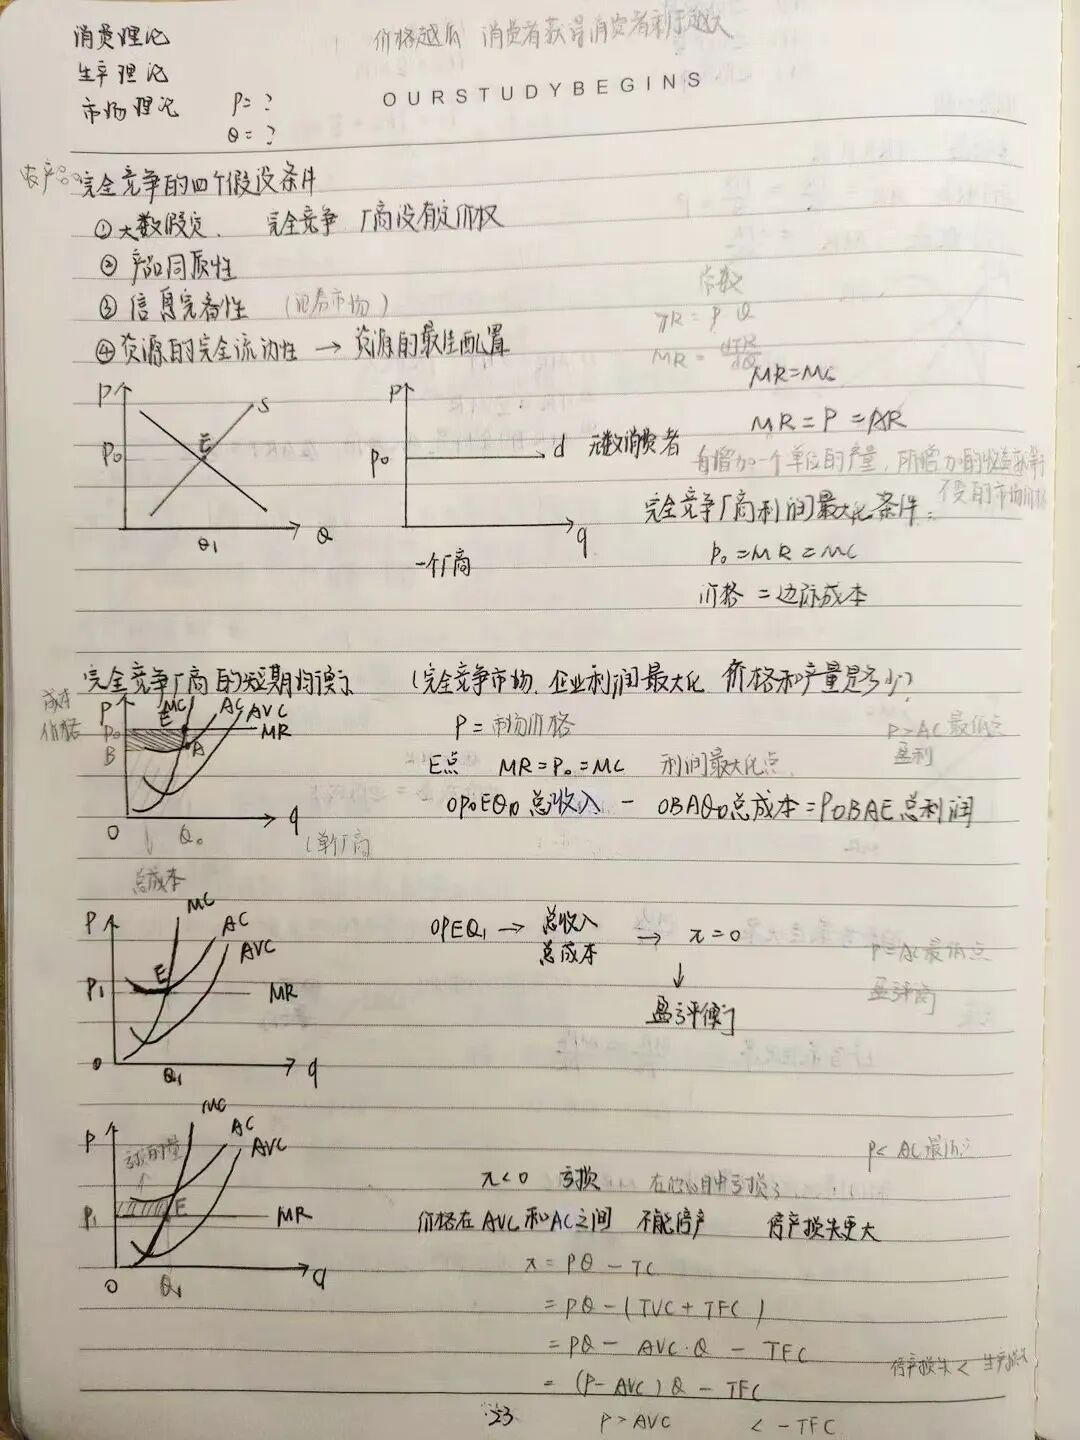 消费理论
生产理论
市场理论 P=?
Q=?
价格越 消费者获得消费者剩余越大
OURSTUDYBEGINS
农产品 完全竞争的四个假设条件
①大数假定. 完全竞争 厂商没有定价权
② 产品同质性
③ 信息完备性 (证券市场)
④资源的完全流动性 → 资源的最佳配置
常数
TR = P Q
MR = dTR/dQ
MR=MC
MR = P = AR
每增加一个单位的产量, 所增加的收益
不变的市场价格
完全竞争厂商利润最大化条件:
P₀ = MR = MC
价格 = 边际成本
P S
P₀ E
Q₁ Q
P
P₀ d 无数消费者
q
一个厂商
完全竞争厂商的短期均衡 (完全竞争市场. 企业利润最大化 价格和产量是多少?
成本
价格
P E MC AC AVC
P₀ MR
B A
O Q₀ q
(单个厂商
总成本
P = 市场价格
E点 MR=P₀=MC 利润最大化点
OP₀EQ₀ 总收入 - OBAQ₀总成本 = P₀BAE 总利润
P>AC最低点
盈利
P MC AC AVC
P₁ E MR
O Q₁ q
OPEQ₁ → 总收入
总成本 → π=0
↓
盈亏平衡
P=AC最低点
盈亏平衡
P MC AC AVC
亏损的量
P₁ E MR
O Q₁ q
P< AC最低点
π<0 亏损
价格在AVC和AC之间 不能停产 停产损失更大
π = PQ - TC
= PQ - (TVC + TFC)
= PQ - AVC·Q - TFC
= (P-AVC)Q - TFC
P > AVC < -TFC
停产损失 < 生产损失
23